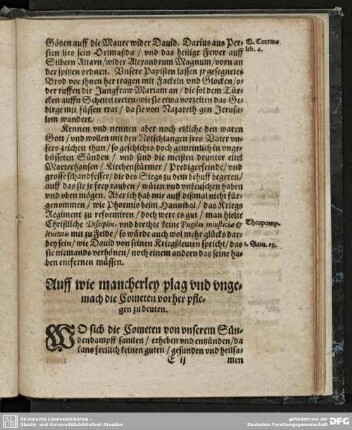 Gönen auff die Maurer wider Dauid. Darius aus Per-
sien lies sein Orimasda / vnd das heilige Fewer auff
Silbern Altarn / wider Alexandrum Magnum / vorn an
der spitzen ordnen. Vnsere Papisten lassen jr gesegnetes
Brod vor jhnen her tragen mit Fackeln vnd Glocken / o-
der ruffen die Jungfraw Mariam an / die sol dem Tür-
cken auffn Scheitel treten / wie sie etwa vorzeiten das Ge-
birge mit füssen trat / da sie von Nazareth gen Jerusa-
lem wandert.
Q. Curtius
lib. 4.
Kennen vnd nennen aber noch etliche den waren
Gott / vnd wollen mit den Notschlangen jres Vater vn-
sers zeichen thun / so geschichts doch gemeintlich in vnge-
büsseten Sünden / vnd sind die meisten drunter eitel
Marterhansen / Kirchenstürmer / Predigerfeinde / vnd
grosse fischandfresser / die des Siegs zu dem behuff begeren /
auff das sie jr frey rauben / wüten vnd vnkeuschen haben
vnd vben mögen. Aber ich hab mir auff dißmal nicht für-
genommen / wie Phormio beim Hannibal / das Kriegs
Regiment zu reformiren / doch were es gut / man hielte
Christliche Disciplin / vnd brechte keine
mit zu Felde / so würde auch wol mehr glücks dar-
bey sein / wie Dauid von seinen Kriegsleuten spricht / das
sie niemands verhönen / noch einem andern das seine ha-
ben entfernen müssen.
Theopomp.
1. Sam. 25.
Auff wie mancherley plag vnd vnge-
mach die Cometen vorher pfle-
gen zu deuten.
WO sich die Cometen von vnserem Sün-
dendampff samlen / erheben vnd entzünden / da
kans freilich keinen guten / gesunden vnd heilsa-
E ij
men
Sächsische Landesbibliothek –
Staats- und Universitätsbibliothek Dresden
gefördert von der
Deutschen Forschungsgemeinschaft
DFG